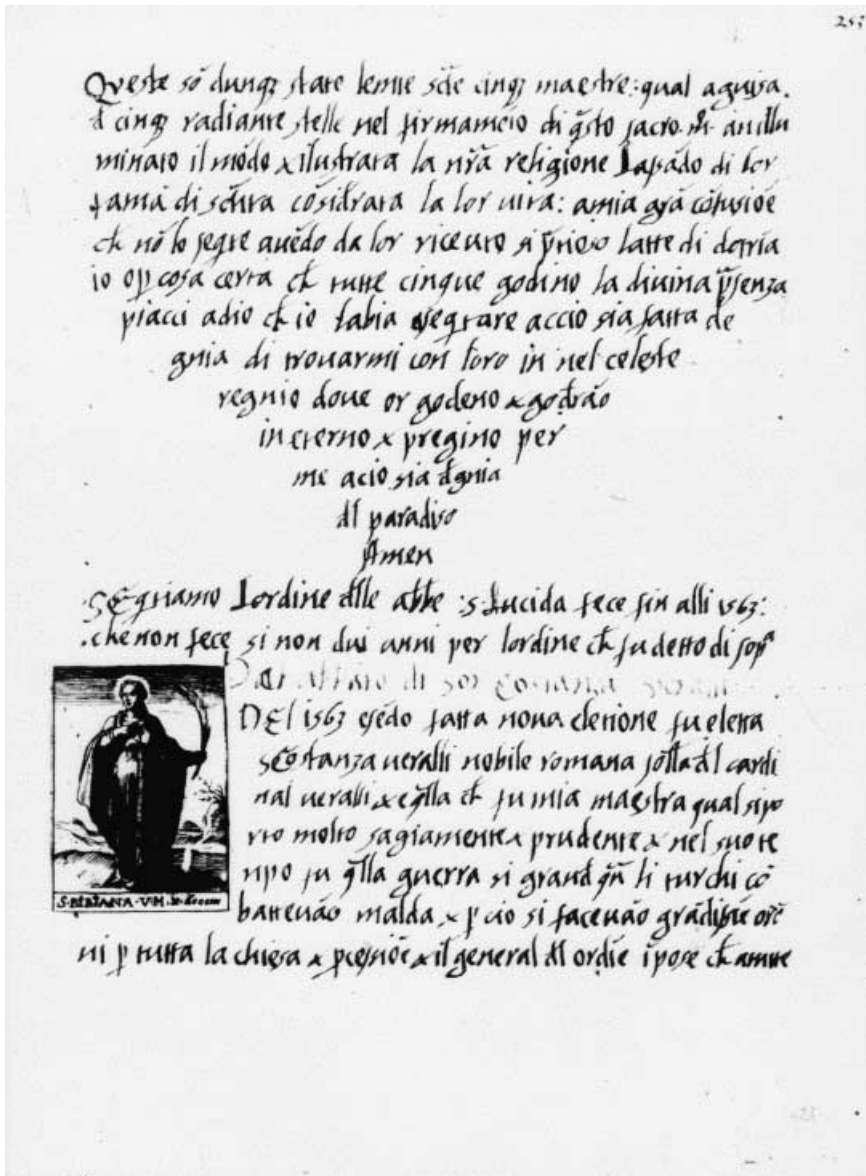 253
Queste sõ dunqz state le mie scte cinqz maestre: qual aguisa.
đ cinqz radiante stelle nel firmamẽto di q̃sto sacro. mo. an illu
minato il mõdo x ilustrata la nr̃a religione
fama di cõsiđrata la lor uita: amia grã cõfusiõe
ch nõ lo seqre auẽdo da lor riceuto si p̃tioso latte di dotrĩa
io cosa certa ch tutte cinque godino la diuina p̃senza
piacci adio ch io labia aseqtare accio sia fatta de
gnia di trouarmi con loro in nel celeste
regnio doue or godeno x gođrão
in eterno x pregino per
me acio sia đgnia
đl paradiso
Amen
SEqriamo Lordine đlle abbe: S. Lucida fece fin alli 1563:
che non fece si non dui anni per lordine ch fu detto di sopa
DEl 1563 esẽdo fatta noua eletione fu eletta
S Costanza ueralli nobile romana đl cardi
nal ueralli x e q̃lla ch fu mia maestra qual si po
rto molto sagiamente x prudente x nel suo te
npo fu q̃lla guerra si granđ qñ li turchi cõ
batteuão malda x p cio si faceuão
ni p tutta la chiesa x pcessiõe x il general đl ordĩe ĩpose ch
S. BIBIANA. V. M.